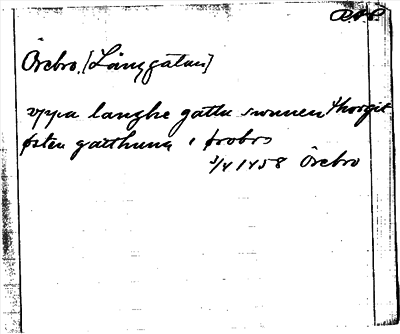 Örebro. [Långgatan]
vppa langhe gattu swnnen thorgit
østen gatthuna i ørobro
3/4 1458 Örebro